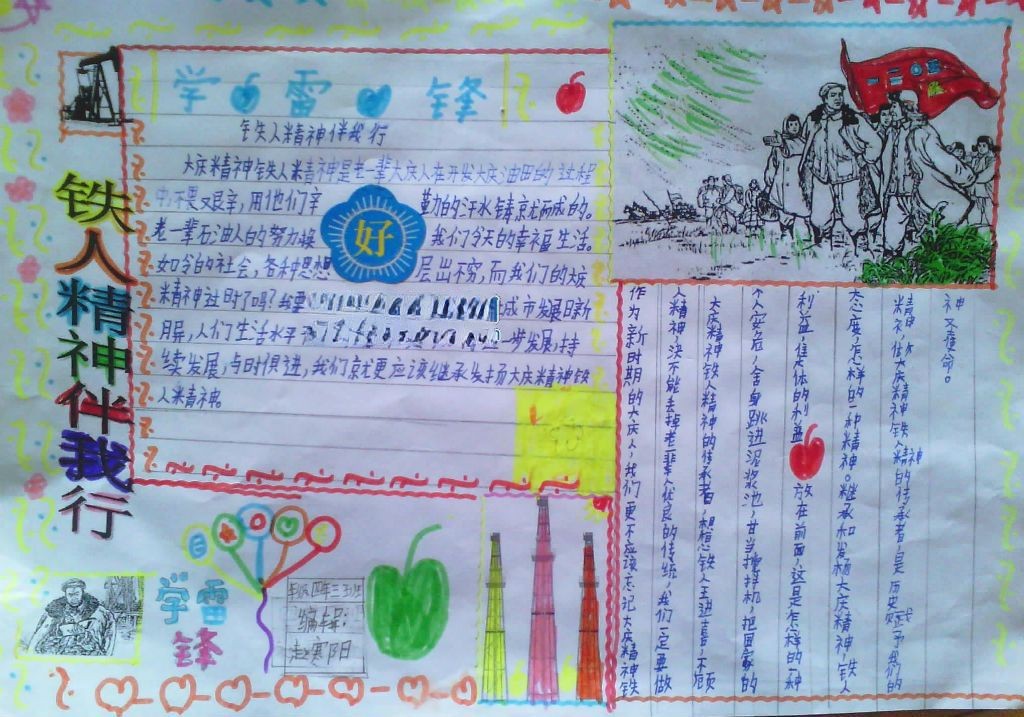 铁人精神伴我行
学雷锋
铁人精神伴我行
大庆精神铁人精神是老一辈大庆人在开发大庆油田的过程
中,不畏艰辛,用他们辛勤的汗水铸就而成的。
老一辈石油人的努力换我们今天的幸福生活。
如今的社会,各种思想层出不穷,而我们的大庆
精神过时了吗?我要城市发展日新
月异,人们生活水平一步发展,持
续发展,与时俱进,我们就更应该继承发扬大庆精神铁
人精神。
好
一二〇五
作为新时期的大庆人,我们更不应该忘记大庆精神铁
人精神,决不能丢掉老一辈人优良的传统,我们一定要做
大庆精神铁人精神的传承者,想想铁人王进喜,不顾
个人安危,舍身跳进泥浆池,甘当搅拌机,把国家的
利益,集体的利益放在前面,这是怎样的一种
态度,怎样的一种精神。继承和发扬大庆精神,铁人
精神,做大庆精神铁人精神的传承者,是历史赋予我们的
神圣使命。
学雷
锋
年级四年三班
编辑:
赵寒阳